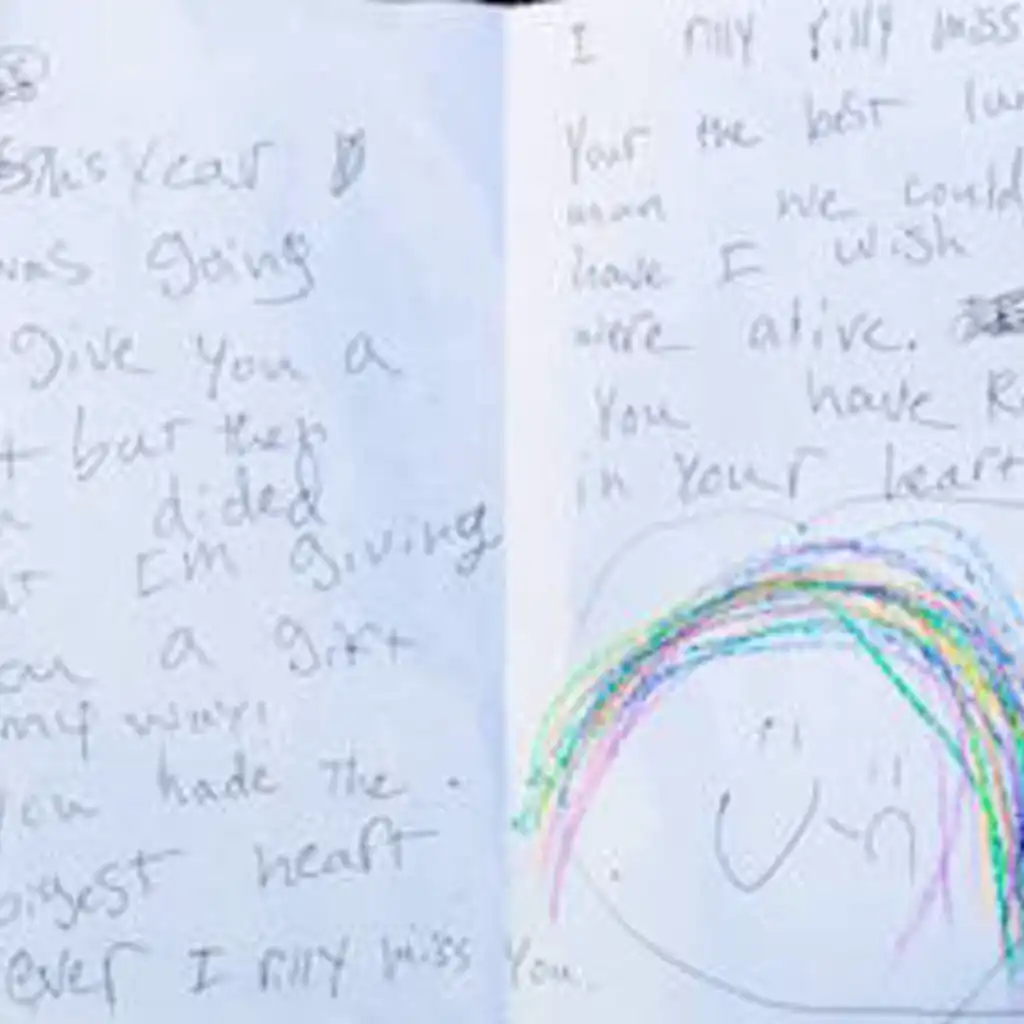 this year
was going
give you a
but then
dided
I'm giving
a gift
my way
you hade The
bigest heart
ever I rilly miss you.
I rilly rilly miss
Your the best
man we could
have I wish
were alive.
You have
in your heart